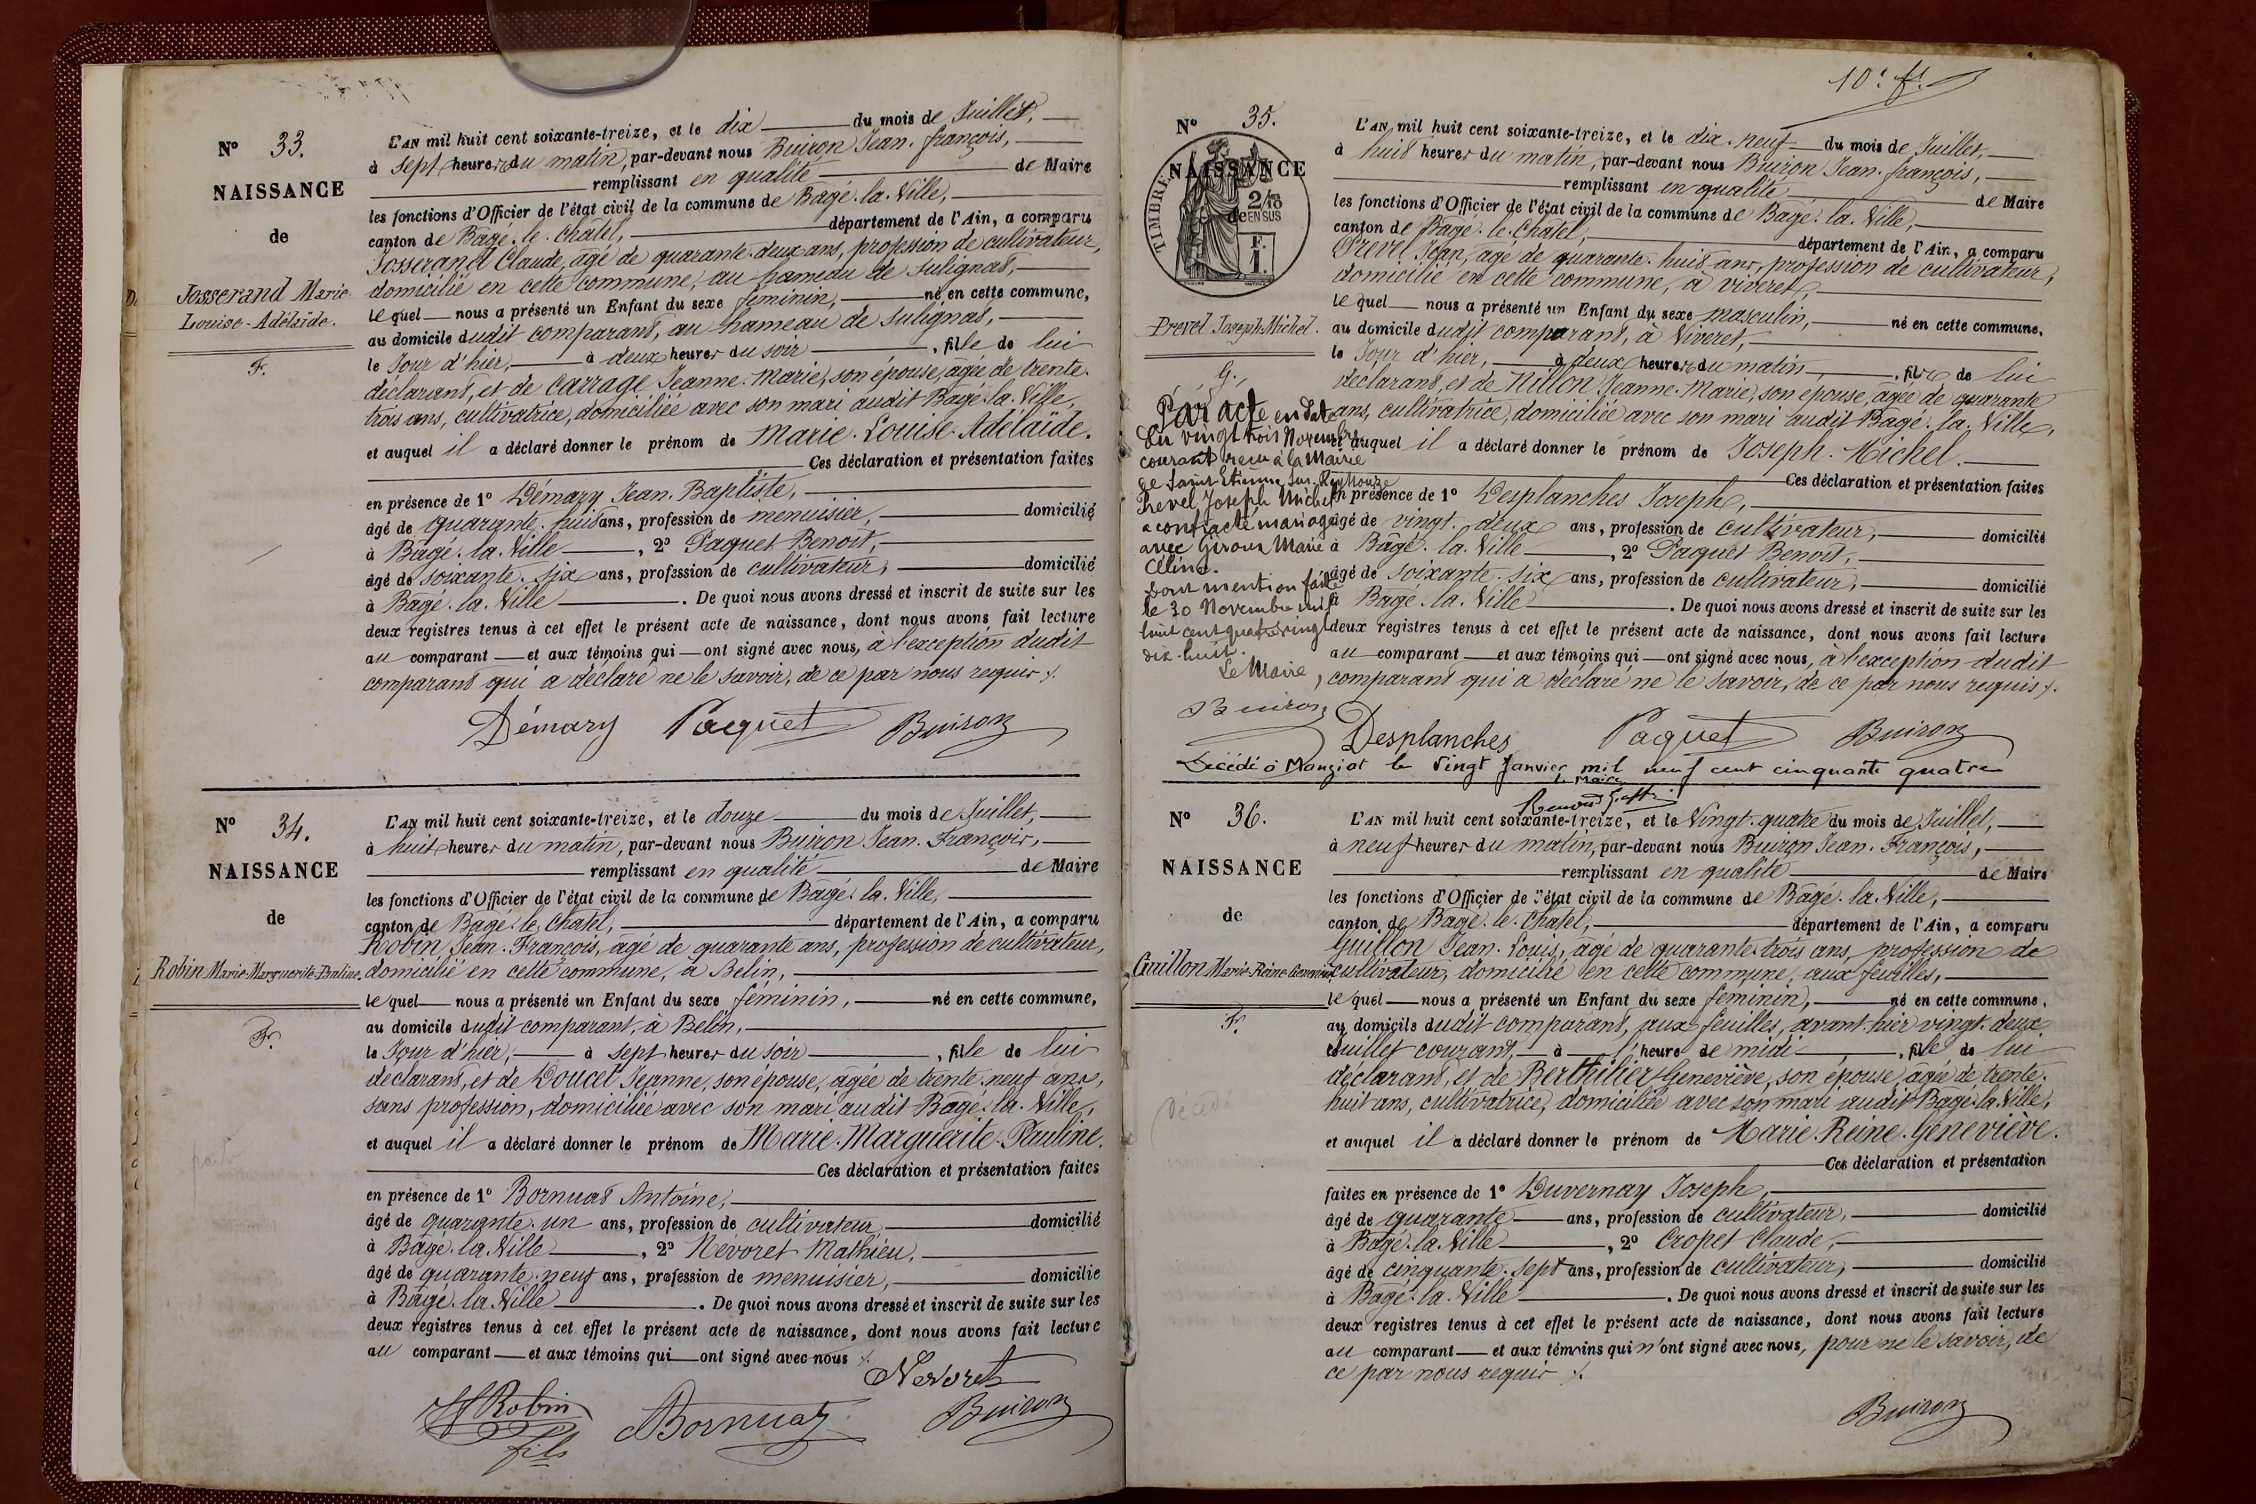 N° 33.
NAISSANCE
de
Josserand Marie
Louise-Adélaïde.
F.
L'AN mil huit cent soixante-treize, et le dix du mois de Juillet,
à sept heures du matin, par-devant nous Buiron Jean-François,
remplissant en qualité de Maire
les fonctions d'Officier de l'état civil de la commune de Bâgé-la-Ville,
canton de Bâgé-le-Châtel, département de l'Ain, a comparu
Josserand Claude, âgé de quarante-deux ans, profession de cultivateur,
domicilié en cette commune, au hameau de Sulignat,
lequel nous a présenté un Enfant du sexe féminin, né en cette commune,
au domicile dudit comparant, au hameau de Sulignat,
le Jour d'hier, à deux heures du soir, fille de lui
déclarant, et de Carrage Jeanne-Marie, son épouse, âgée de trente-
trois ans, cultivatrice, domiciliée avec son mari audit Bâgé-la-Ville,
et auquel il a déclaré donner le prénom de Marie-Louise-Adélaïde.
Ces déclaration et présentation faites
en présence de 1° Démary Jean-Baptiste,
âgé de quarante-huit ans, profession de menuisier, domicilié
à Bâgé-la-Ville, 2° Paquet Benoit,
âgé de soixante-six ans, profession de cultivateur, domicilié
à Bâgé-la-Ville. De quoi nous avons dressé et inscrit de suite sur les
deux registres tenus à cet effet le présent acte de naissance, dont nous avons fait lecture
au comparant et aux témoins qui ont signé avec nous, à l'exception dudit
comparant qui a déclaré ne le savoir, de ce par nous requis.
Démary Paquet Buiron
N° 34.
NAISSANCE
de
Robin Marie-Marguerite-Pauline.
F.
L'AN mil huit cent soixante-treize, et le douze du mois de Juillet,
à huit heures du matin, par-devant nous Buiron Jean-François,
remplissant en qualité de Maire
les fonctions d'Officier de l'état civil de la commune de Bâgé-la-Ville,
canton de Bâgé-le-Châtel, département de l'Ain, a comparu
Robin Jean-François, âgé de quarante ans, profession de cultivateur,
domicilié en cette commune, à Belin,
lequel nous a présenté un Enfant du sexe féminin, né en cette commune,
au domicile dudit comparant, à Belin,
le Jour d'hier, à sept heures du soir, fille de lui
déclarant, et de Doucet Jeanne, son épouse, âgée de trente-neuf ans,
sans profession, domiciliée avec son mari audit Bâgé-la-Ville,
et auquel il a déclaré donner le prénom de Marie-Marguerite-Pauline.
Ces déclaration et présentation faites
en présence de 1° Bornuat Antoine,
âgé de quarante-un ans, profession de cultivateur, domicilié
à Bâgé-la-Ville, 2° Névoret Mathieu,
âgé de quarante-neuf ans, profession de menuisier, domicilié
à Bâgé-la-Ville. De quoi nous avons dressé et inscrit de suite sur les
deux registres tenus à cet effet le présent acte de naissance, dont nous avons fait lecture
au comparant et aux témoins qui ont signé avec nous.
Nevoret
Robin fils Bornuat Buiron
10e ft
N° 35.
NAISSANCE
de
TIMBRE
2/10 EN SUS
F. 1.
Prevel Joseph-Michel.
G.
L'AN mil huit cent soixante-treize, et le dix-neuf du mois de Juillet,
à huit heures du matin, par-devant nous Buiron Jean-François,
remplissant en qualité de Maire
les fonctions d'Officier de l'état civil de la commune de Bâgé-la-Ville,
canton de Bâgé-le-Châtel, département de l'Ain, a comparu
Prevel Jean, âgé de quarante-huit ans, profession de cultivateur,
domicilié en cette commune, à Viveret,
lequel nous a présenté un Enfant du sexe masculin, né en cette commune,
au domicile dudit comparant, à Viveret,
le Jour d'hier, à deux heures du matin, fils de lui
déclarant, et de Nillon Jeanne-Marie, son épouse, âgée de quarante
ans, cultivatrice, domiciliée avec son mari audit Bâgé-la-Ville,
et auquel il a déclaré donner le prénom de Joseph-Michel.
Ces déclaration et présentation faites
en présence de 1° Desplanches Joseph,
âgé de vingt-deux ans, profession de cultivateur, domicilié
à Bâgé-la-Ville, 2° Paquet Benoit,
âgé de soixante-six ans, profession de cultivateur, domicilié
à Bâgé-la-Ville. De quoi nous avons dressé et inscrit de suite sur les
deux registres tenus à cet effet le présent acte de naissance, dont nous avons fait lecture
au comparant et aux témoins qui ont signé avec nous, à l'exception dudit
comparant qui a déclaré ne le savoir, de ce par nous requis.
Par acte en date
du vingt trois Novembre
courant reçu à la Mairie
de Saint Etienne sur Reyssouze
Prevel Joseph Michel
a contracté mariage
avec Giroux Marie
Céline.
Dont mention faite
le 30 Novembre mil
huit cent quatre vingt
dix-huit.
Le Maire,
Buiron
Desplanches Paquet Buiron
Décédé à Manziat le vingt Janvier mil neuf cent cinquante quatre
le Maire
N° 36.
NAISSANCE
de
Guillon Marie-Reine-Geneviève
F.
L'AN mil huit cent soixante-treize, et le Vingt-quatre du mois de Juillet,
à neuf heures du matin, par-devant nous Buiron Jean-François,
remplissant en qualité de Maire
les fonctions d'Officier de l'état civil de la commune de Bâgé-la-Ville,
canton de Bâgé-le-Châtel, département de l'Ain, a comparu
Guillon Jean-Louis, âgé de quarante-trois ans, profession de
cultivateur, domicilié en cette commune, aux feuilles,
lequel nous a présenté un Enfant du sexe féminin, né en cette commune,
au domicile dudit comparant, aux feuilles, avant-hier vingt-deux
Juillet courant, à l'heure de midi, fille de lui
déclarant, et de Berthilier Geneviève, son épouse, âgée de trente-
huit ans, cultivatrice, domiciliée avec son mari audit Bâgé-la-Ville,
et auquel il a déclaré donner le prénom de Marie-Reine-Geneviève.
Ces déclaration et présentation
faites en présence de 1° Duvernay Joseph,
âgé de quarante ans, profession de cultivateur, domicilié
à Bâgé-la-Ville, 2° Cropet Claude,
âgé de cinquante-sept ans, profession de cultivateur, domicilié
à Bâgé-la-Ville. De quoi nous avons dressé et inscrit de suite sur les
deux registres tenus à cet effet le présent acte de naissance, dont nous avons fait lecture
au comparant et aux témoins qui n'ont signé avec nous, pour ne le savoir, de
ce par nous requis.
Buiron